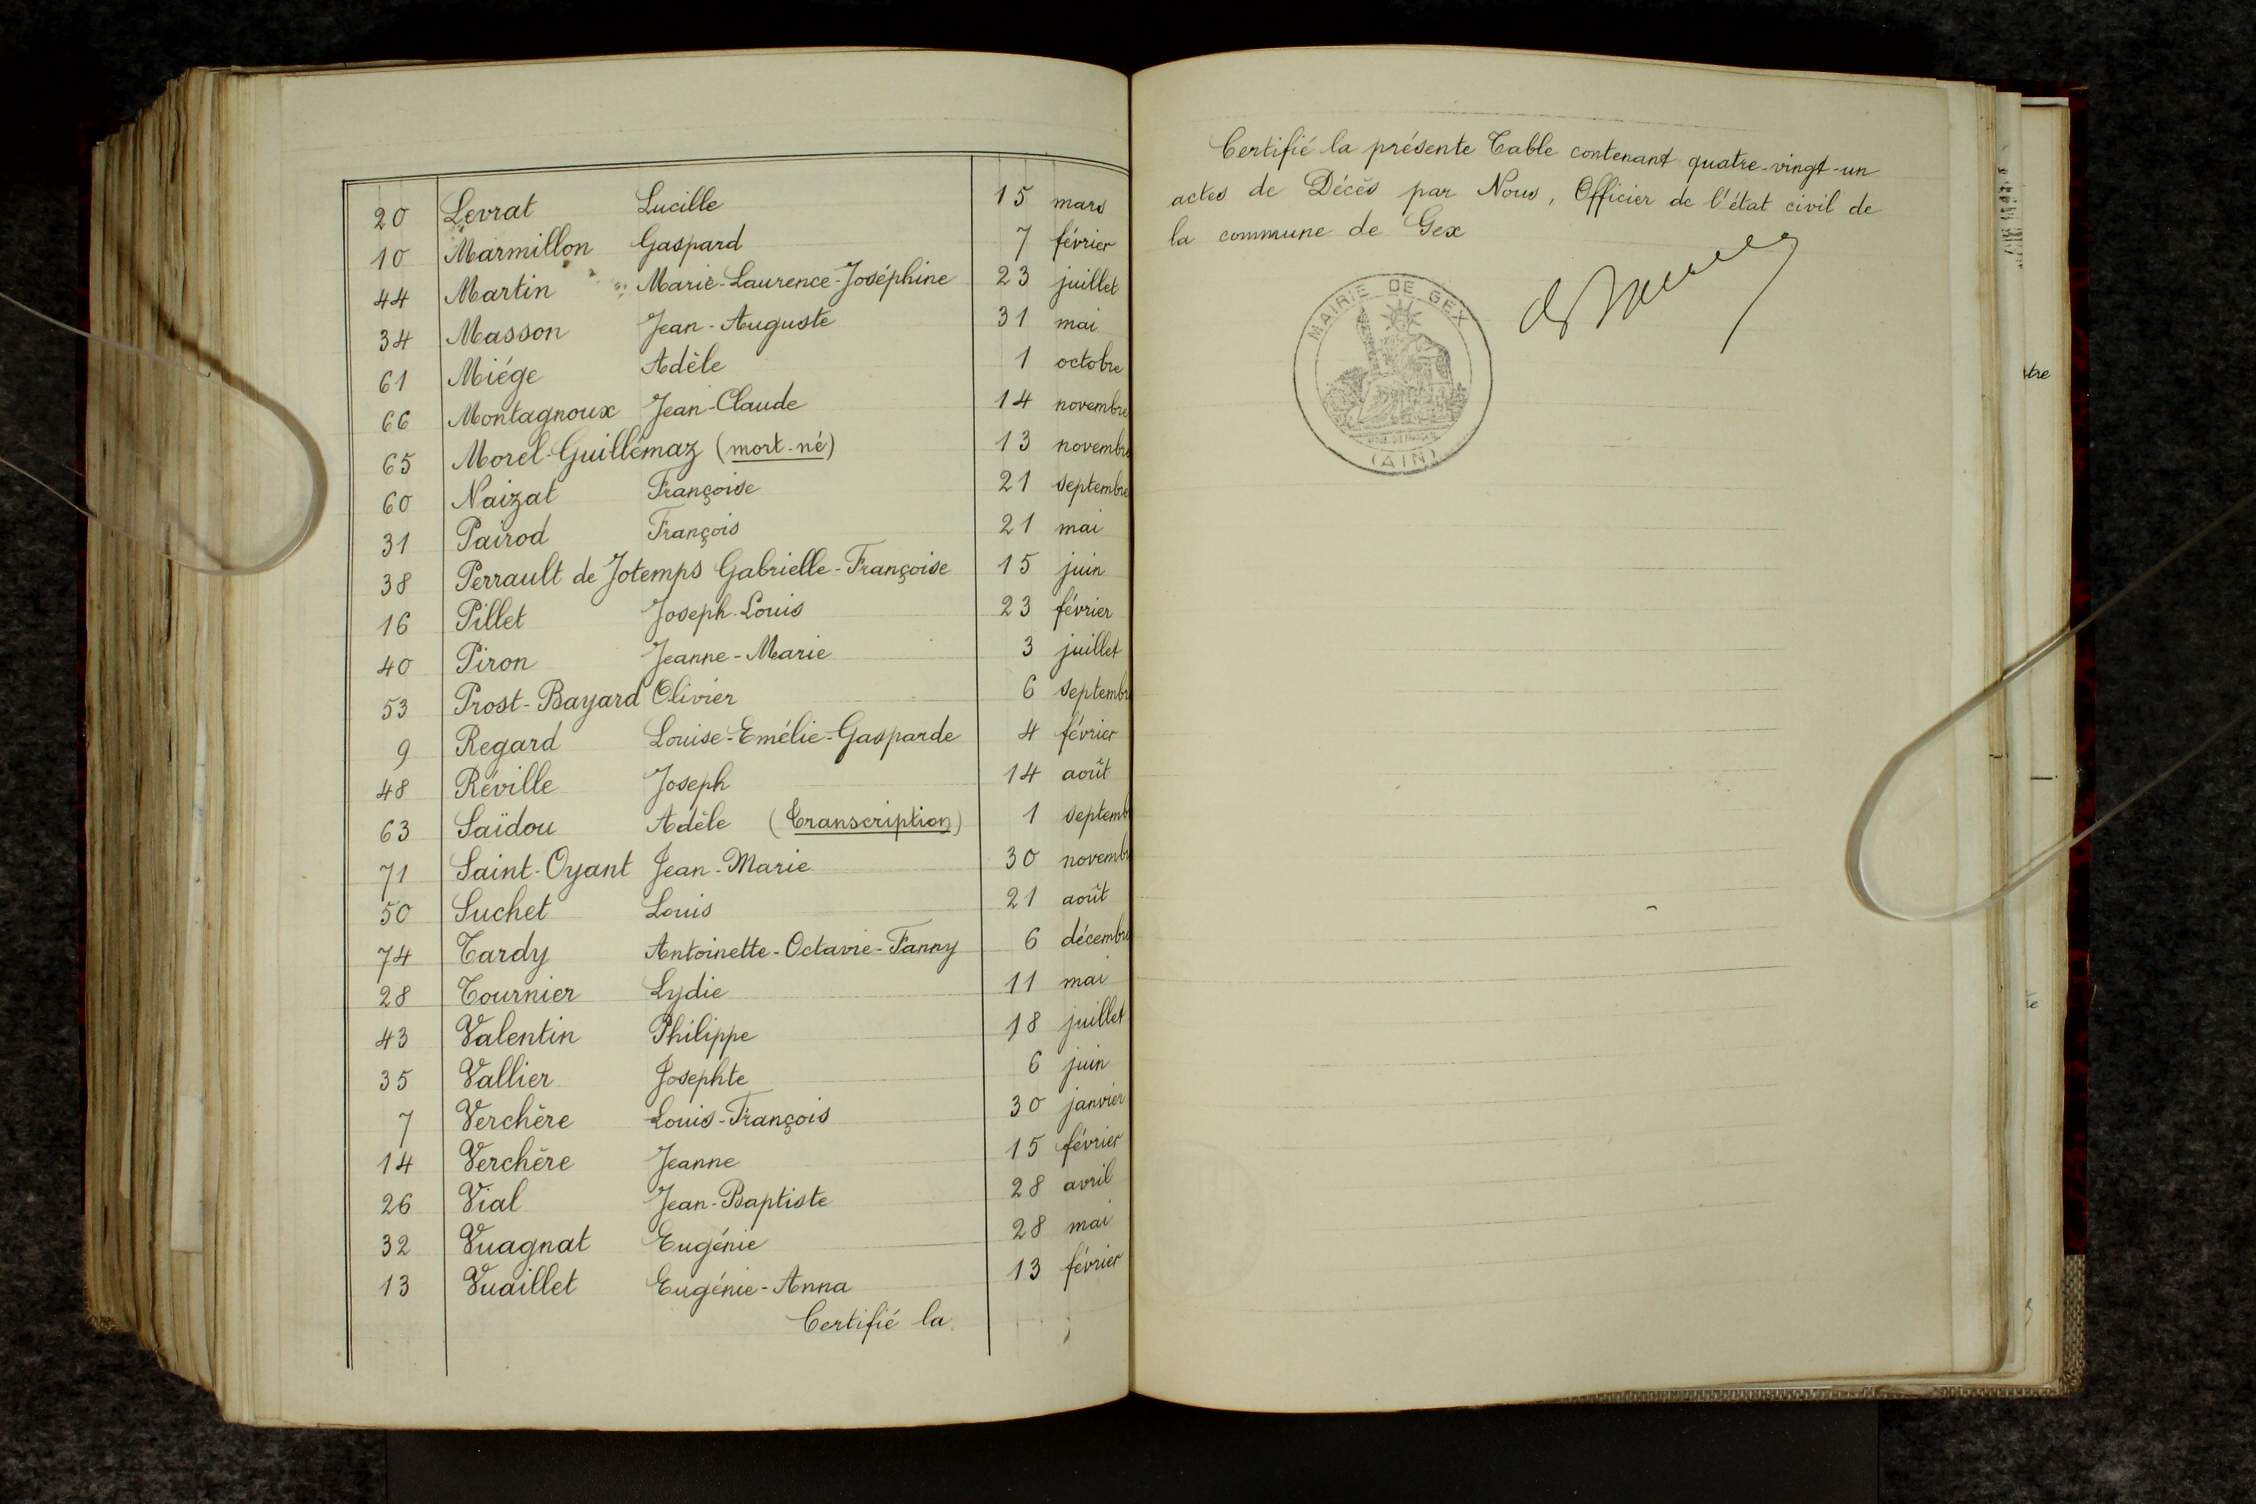 20 Levrat Lucille 15 mars
10 Marmillon Gaspard 7 février
44 Martin Marie-Laurence-Joséphine 23 juillet
34 Masson Jean-Auguste 31 mai
61 Miége Adèle 1 octobre
66 Montagnoux Jean-Claude 14 novembre
65 Morel-Guillemaz (mort-né) 13 novembre
60 Naizat Françoise 21 septembre
31 Pairod François 21 mai
38 Perrault de Jotemps Gabrielle-Françoise 15 juin
16 Pillet Joseph-Louis 23 février
40 Piron Jeanne-Marie 3 juillet
53 Prost-Bayard Olivier 6 septembr
9 Regard Louise-Emélie-Gasparde 4 février
48 Réville Joseph 14 août
63 Saïdou Adèle (Transcription) 1 septemb
71 Saint-Oyant Jean-Marie 30 novembr
50 Suchet Louis 21 août
74 Tardy Antoinette-Octavie-Fanny 6 décembre
28 Tournier Lydie 11 mai
43 Valentin Philippe 18 juillet
35 Vallier Josephte 6 juin
7 Verchère Louis-François 30 janvier
14 Verchère Jeanne 15 février
26 Vial Jean-Baptiste 28 avril
32 Vuagnat Eugénie 28 mai
13 Vuaillet Eugénie-Anna 13 février
Certifié la
Certifié la présente Table contenant quatre-vingt-un
actes de Décès par Nous, Officier de l'état civil de
la commune de Gex
MAIRIE DE GEX
(AIN)
tre